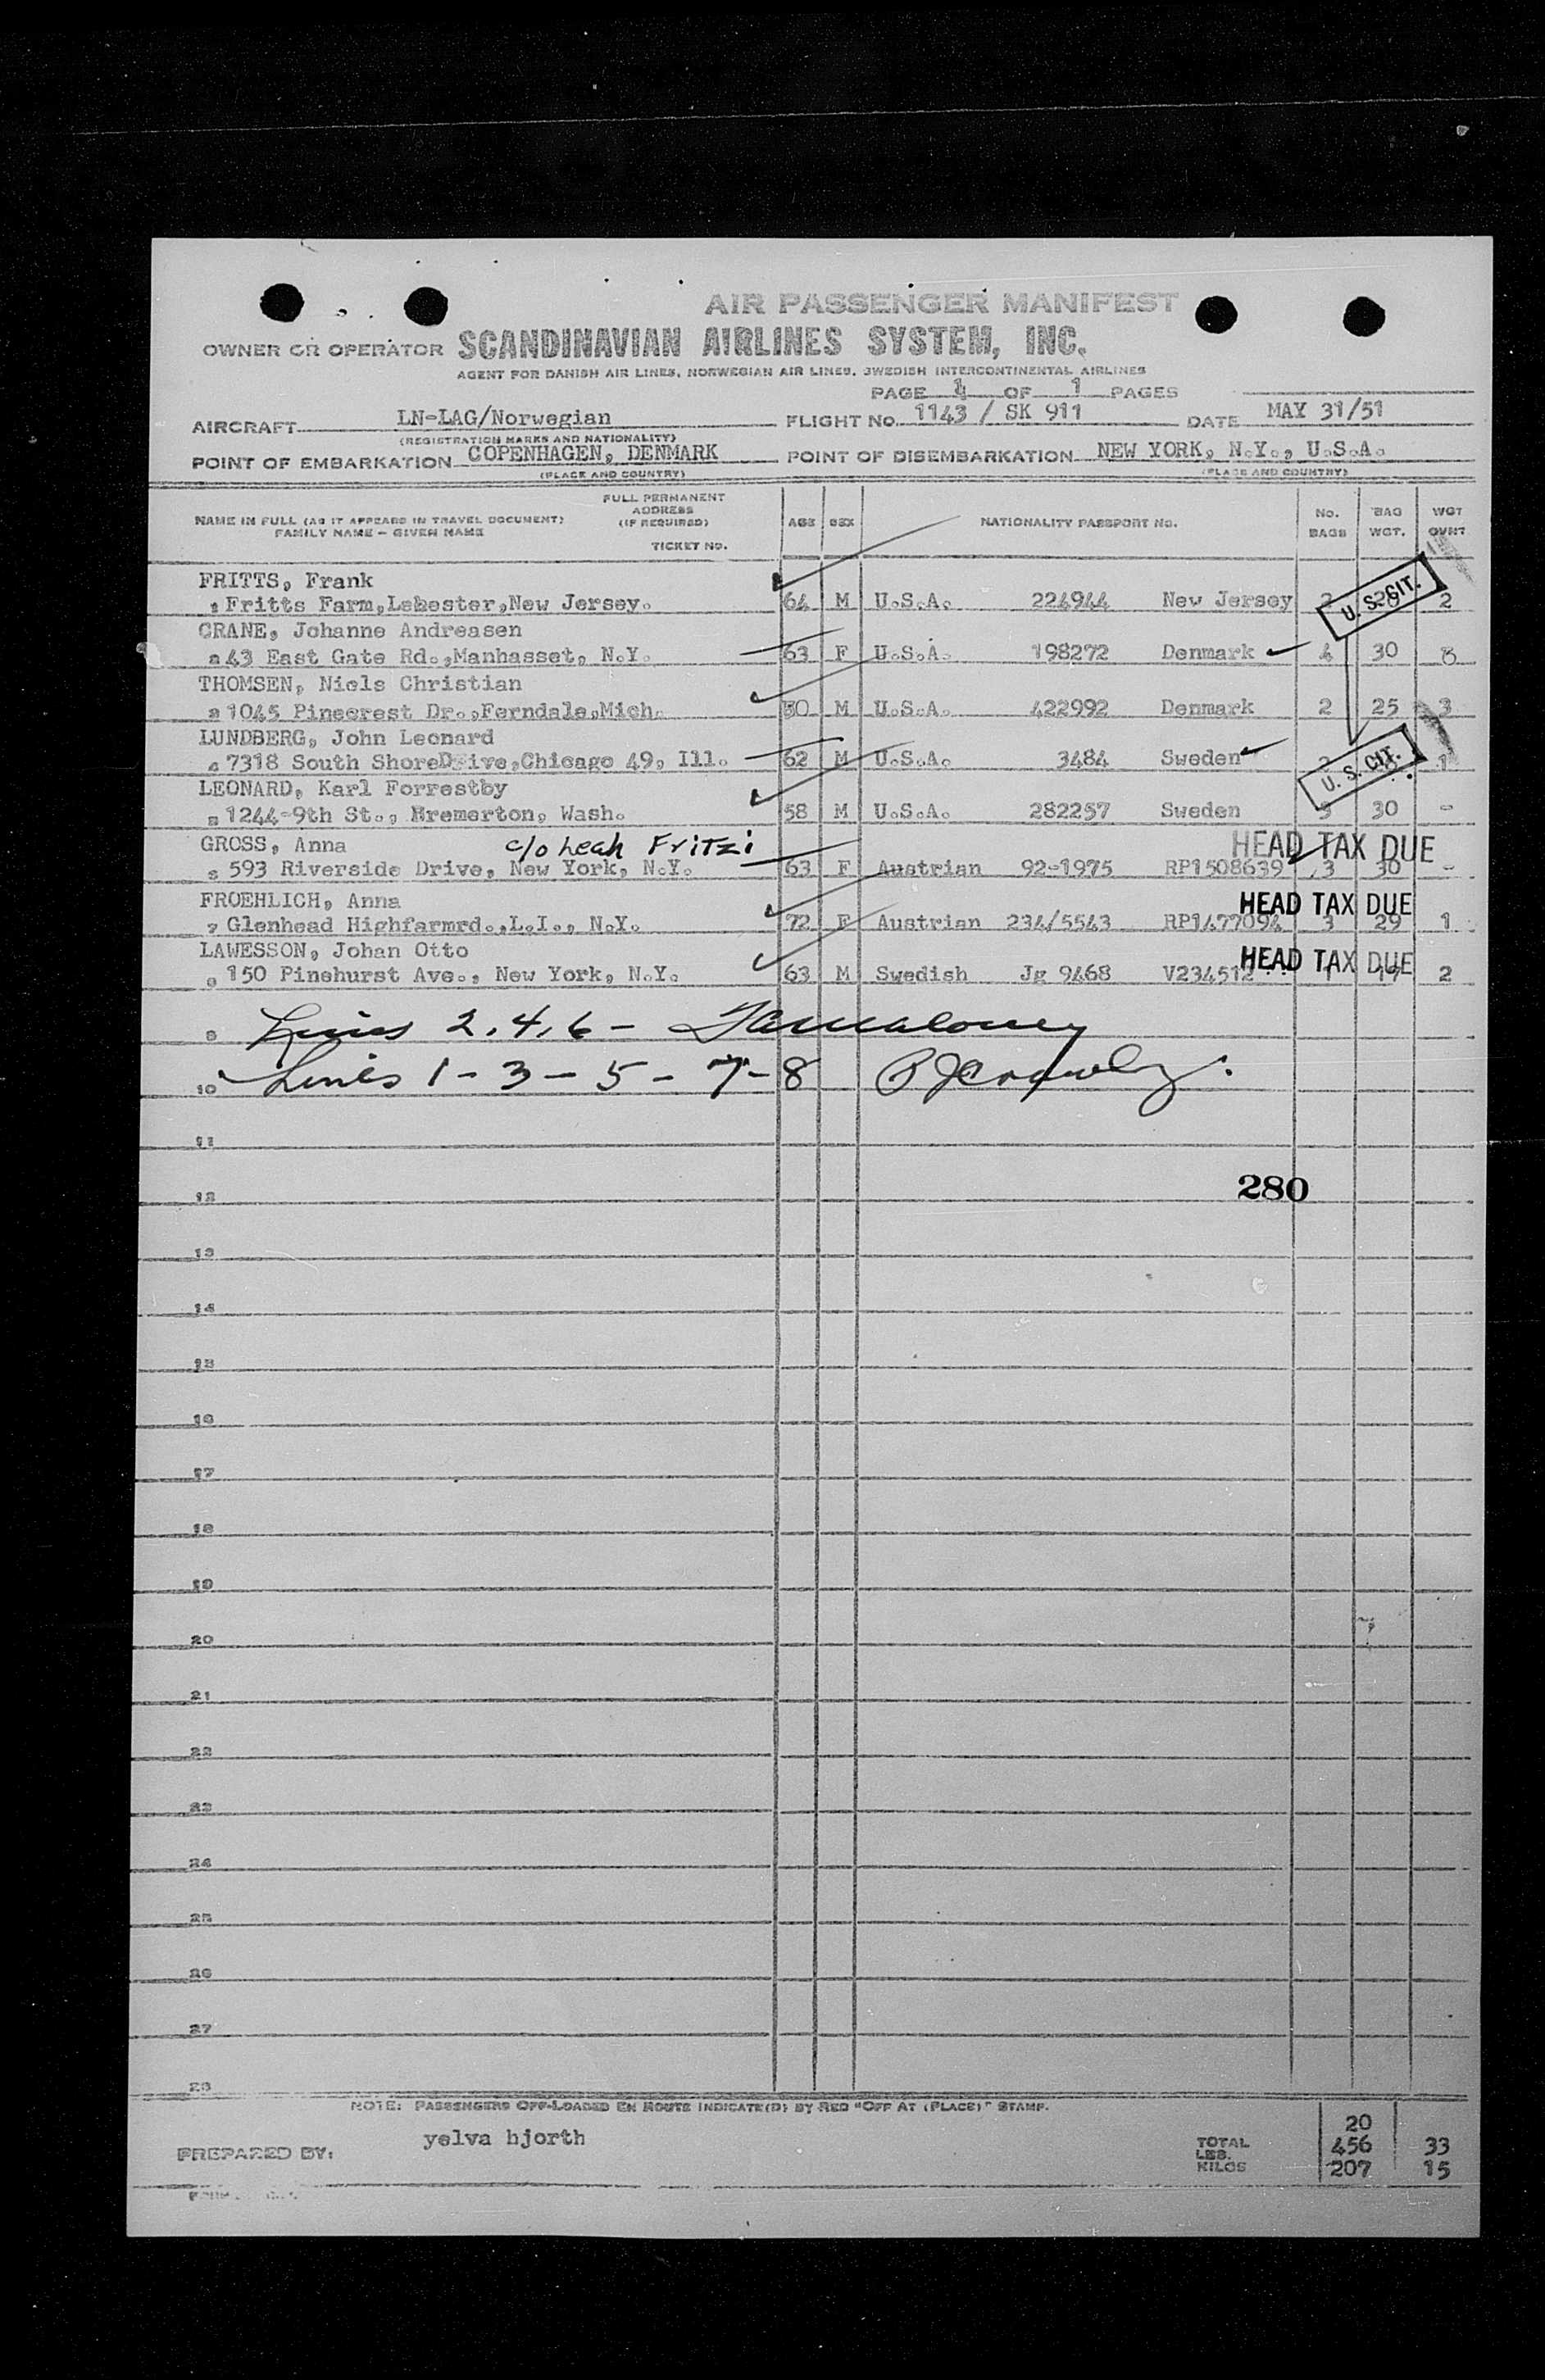 AIR PASSENGER MANIFEST
OWNER OR OPERATOR SCANDINAVIAN AIRLINES SYSTEM, INC.
AGENT FOR DANISH AIR LINES, NORWEGIAN AIR LINES, SWEDISH INTERCONTINENTAL AIRLINES
PAGE 1 OF 1 PAGES
AIRCRAFT LN-LAG/Norwegian FLIGHT NO. 1143 / SK 911 DATE MAY 31/51
(REGISTRATION MARKS AND NATIONALITY)
POINT OF EMBARKATION COPENHAGEN, DENMARK POINT OF DISEMBARKATION NEW YORK, N.Y., U.S.A.
(PLACE AND COUNTRY) (PLACE AND COUNTRY)
NAME IN FULL (AS IT APPEARS IN TRAVEL DOCUMENT)
FAMILY NAME - GIVEN NAME
FULL PERMANENT
ADDRESS
(IF REQUIRED)
TICKET NO.
AGE SEX NATIONALITY PASSPORT NO. NO. BAGS BAG WGT. WGT
FRITTS, Frank
Fritts Farm, New Jersey. 64 M U.S.A. 224944 New Jersey 2
U. S. CIT.
CRANE, Johanne Andreasen
43 East Gate Rd.,Manhasset, N.Y. 63 F U.S.A. 198272 Denmark 4 30
THOMSEN, Niels Christian
1045 Pinecrest Dr.,Ferndale,Mich. 50 M U.S.A. 422992 Denmark 2 25 3
LUNDBERG, John Leonard
7318 South Shore Drive,Chicago 49, Ill. 62 M U.S.A. 3484 Sweden 1
U. S. CIT.
LEONARD, Karl Forrestby
1244-9th St., Bremerton, Wash. 58 M U.S.A. 282257 Sweden 3 30 -
GROSS, Anna c/o Leah Fritzi HEAD TAX DUE
593 Riverside Drive, New York, N.Y. 63 F Austrian 92-1975 RP1508639 3 30 -
FROEHLICH, Anna HEAD TAX DUE
7 Glenhead Highfarmrd.,L.I., N.Y. 72 F Austrian 234/5543 RP1477094 3 29 1
LAWESSON, Johan Otto HEAD TAX DUE
150 Pinehurst Ave., New York, N.Y. 63 M Swedish Jg 9468 V234512 1 2
9 Lines 2, 4, 6 -
10 Lines 1 - 3 - 5 - 7 - 8
11
280
12
13
14
15
16
17
18
19
20
21
22
23
24
25
26
27
28
NOTE: PASSENGERS OFF-LOADED EN ROUTE INDICATE(D) BY RED "OFF AT (PLACE)" STAMP.
PREPARED BY: yelva hjorth
TOTAL 20
LBS. 456 33
KILOS 207 15